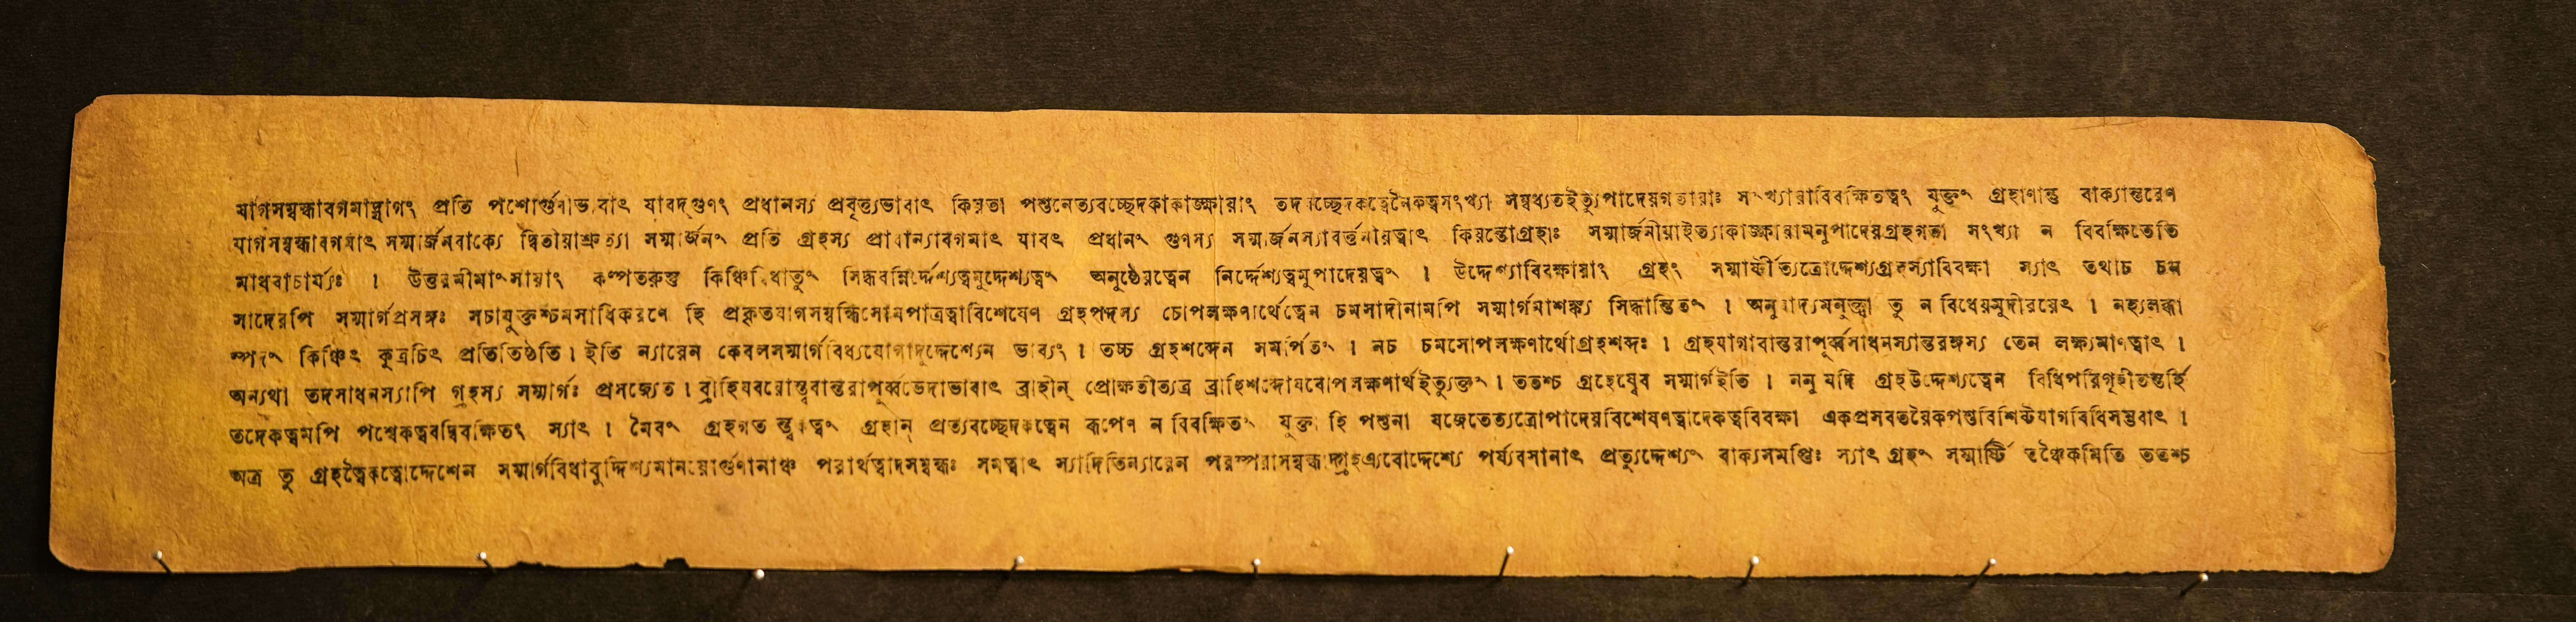 যাগসম্বন্ধাবগমাদ্যাগং প্রতি পশোর্গুণাভাবাৎ যাবদ্গুণং প্রধানস্য প্রবৃত্ত্যভাবাৎ কিয়তা পশুনেত্যবচ্ছেদকাকাঙ্ক্ষায়াং তদবচ্ছেদকত্বেনৈকত্বসংখ্যা সম্বধ্যতইত্যুপাদেয়গতায়াঃ সংখ্যায়াবিবক্ষিতত্বং যুক্তং গ্রহাণান্তু বাক্যান্তরেণ
যাগসম্বন্ধাবগমাৎ সম্মার্জনবাক্যে দ্বিতীয়াশ্রুত্যা সম্মার্জনং প্রতি গ্রহস্য প্রাধান্যাবগমাৎ যাবৎ প্রধানং গুণস্য সম্মার্জনস্যাবর্ত্তনীয়ত্বাৎ কিয়ন্তোগ্রহাঃ সম্মার্জনীয়াইত্যাকাঙ্ক্ষায়ামনুপাদেয়গ্রহগতা সংখ্যা ন বিবক্ষিতেতি
মাধবাচার্য্যঃ । উত্তরমীমাংসায়াং কল্পতরুস্তু কিঞ্চিদ্বিধাতুং সিদ্ধবন্নির্দ্দেশ্যত্বমুদ্দেশ্যত্বং অনুষ্ঠেয়ত্বেন নির্দ্দেশ্যত্বমুপাদেয়ত্বং । উদ্দেশ্যাবিবক্ষায়াং গ্রহং সম্মার্ষ্টীত্যত্রোদ্দেশ্যগ্রহস্যাবিবক্ষা স্যাৎ তথাচ চম
সাদেরপি সম্মার্গপ্রসঙ্গঃ সচাযুক্তশ্চমসাধিকরণে হি প্রকৃতযাগসম্বন্ধিসোমপাত্রত্বাবিশেষেণ গ্রহপদস্য চোপলক্ষণার্থত্বেন চমসাদীনামপি সম্মার্গমাশঙ্ক্য সিদ্ধান্তিতং । অনুবাদ্যমনুক্ত্বা তু ন বিধেয়মুদীরয়েৎ । নহ্যলব্ধা
স্পদং কিঞ্চিৎ কুত্রচিৎ প্রতিতিষ্ঠতি । ইতি ন্যায়েন কেবলসম্মার্গবিধ্যযোগাদুদ্দেশ্যেন ভাব্যং । তচ্চ গ্রহশব্দেন সমর্পিতং । নচ চমসোপলক্ষণার্থোগ্রহশব্দঃ । গ্রহযাগাবান্তরাপূর্ব্বসাধনস্যান্তরঙ্গস্য তেন লক্ষ্যমাণত্বাৎ ।
অন্যথা তদসাধনস্যাপি গৃহস্য সম্মার্গঃ প্রসজ্যেত । ব্রীহিযবয়োস্ত্ববান্তরাপূর্ব্বভেদাভাবাৎ ব্রীহীন্ প্রোক্ষতীত্যত্র ব্রীহিশব্দোযবোপলক্ষণার্থইত্যুক্তং । ততশ্চ গ্রহেষ্বেব সম্মার্গইতি । ননু যদি গ্রহউদ্দেশ্যত্বেন বিধিপরিগৃহীতস্তর্হি
তদেকত্বমপি পশ্বেকত্ববদ্বিবক্ষিতং স্যাৎ । মৈবং গ্রহগত গ্রহান্ প্রত্যবচ্ছেদকত্বেন রূপেণ ন বিবক্ষিতং যুক্তা হি পশুনা যজেতেত্যত্রোপাদেয়বিশেষণত্বাদেকত্ববিবক্ষা একপ্রসবতয়ৈকপশুবিশিষ্টযাগবিধিসম্ভবাৎ ।
অত্র তু গ্রহত্বৈকত্বোদ্দেশেন সম্মার্গবিধাবুদ্দিশ্যমানয়োর্গুণানাঞ্চ পরার্থত্বাদসম্বন্ধঃ সমত্বাৎ স্যাদিতিন্যায়েন পরস্পরাসম্বন্ধাদ্গ্রহএবোদ্দেশ্যে পর্য্যবসানাৎ প্রত্যুদ্দেশ্যং বাক্যসমাপ্তিঃ স্যাৎ গ্রহং সম্মার্ষ্টি তঞ্চৈকমিতি ততশ্চ